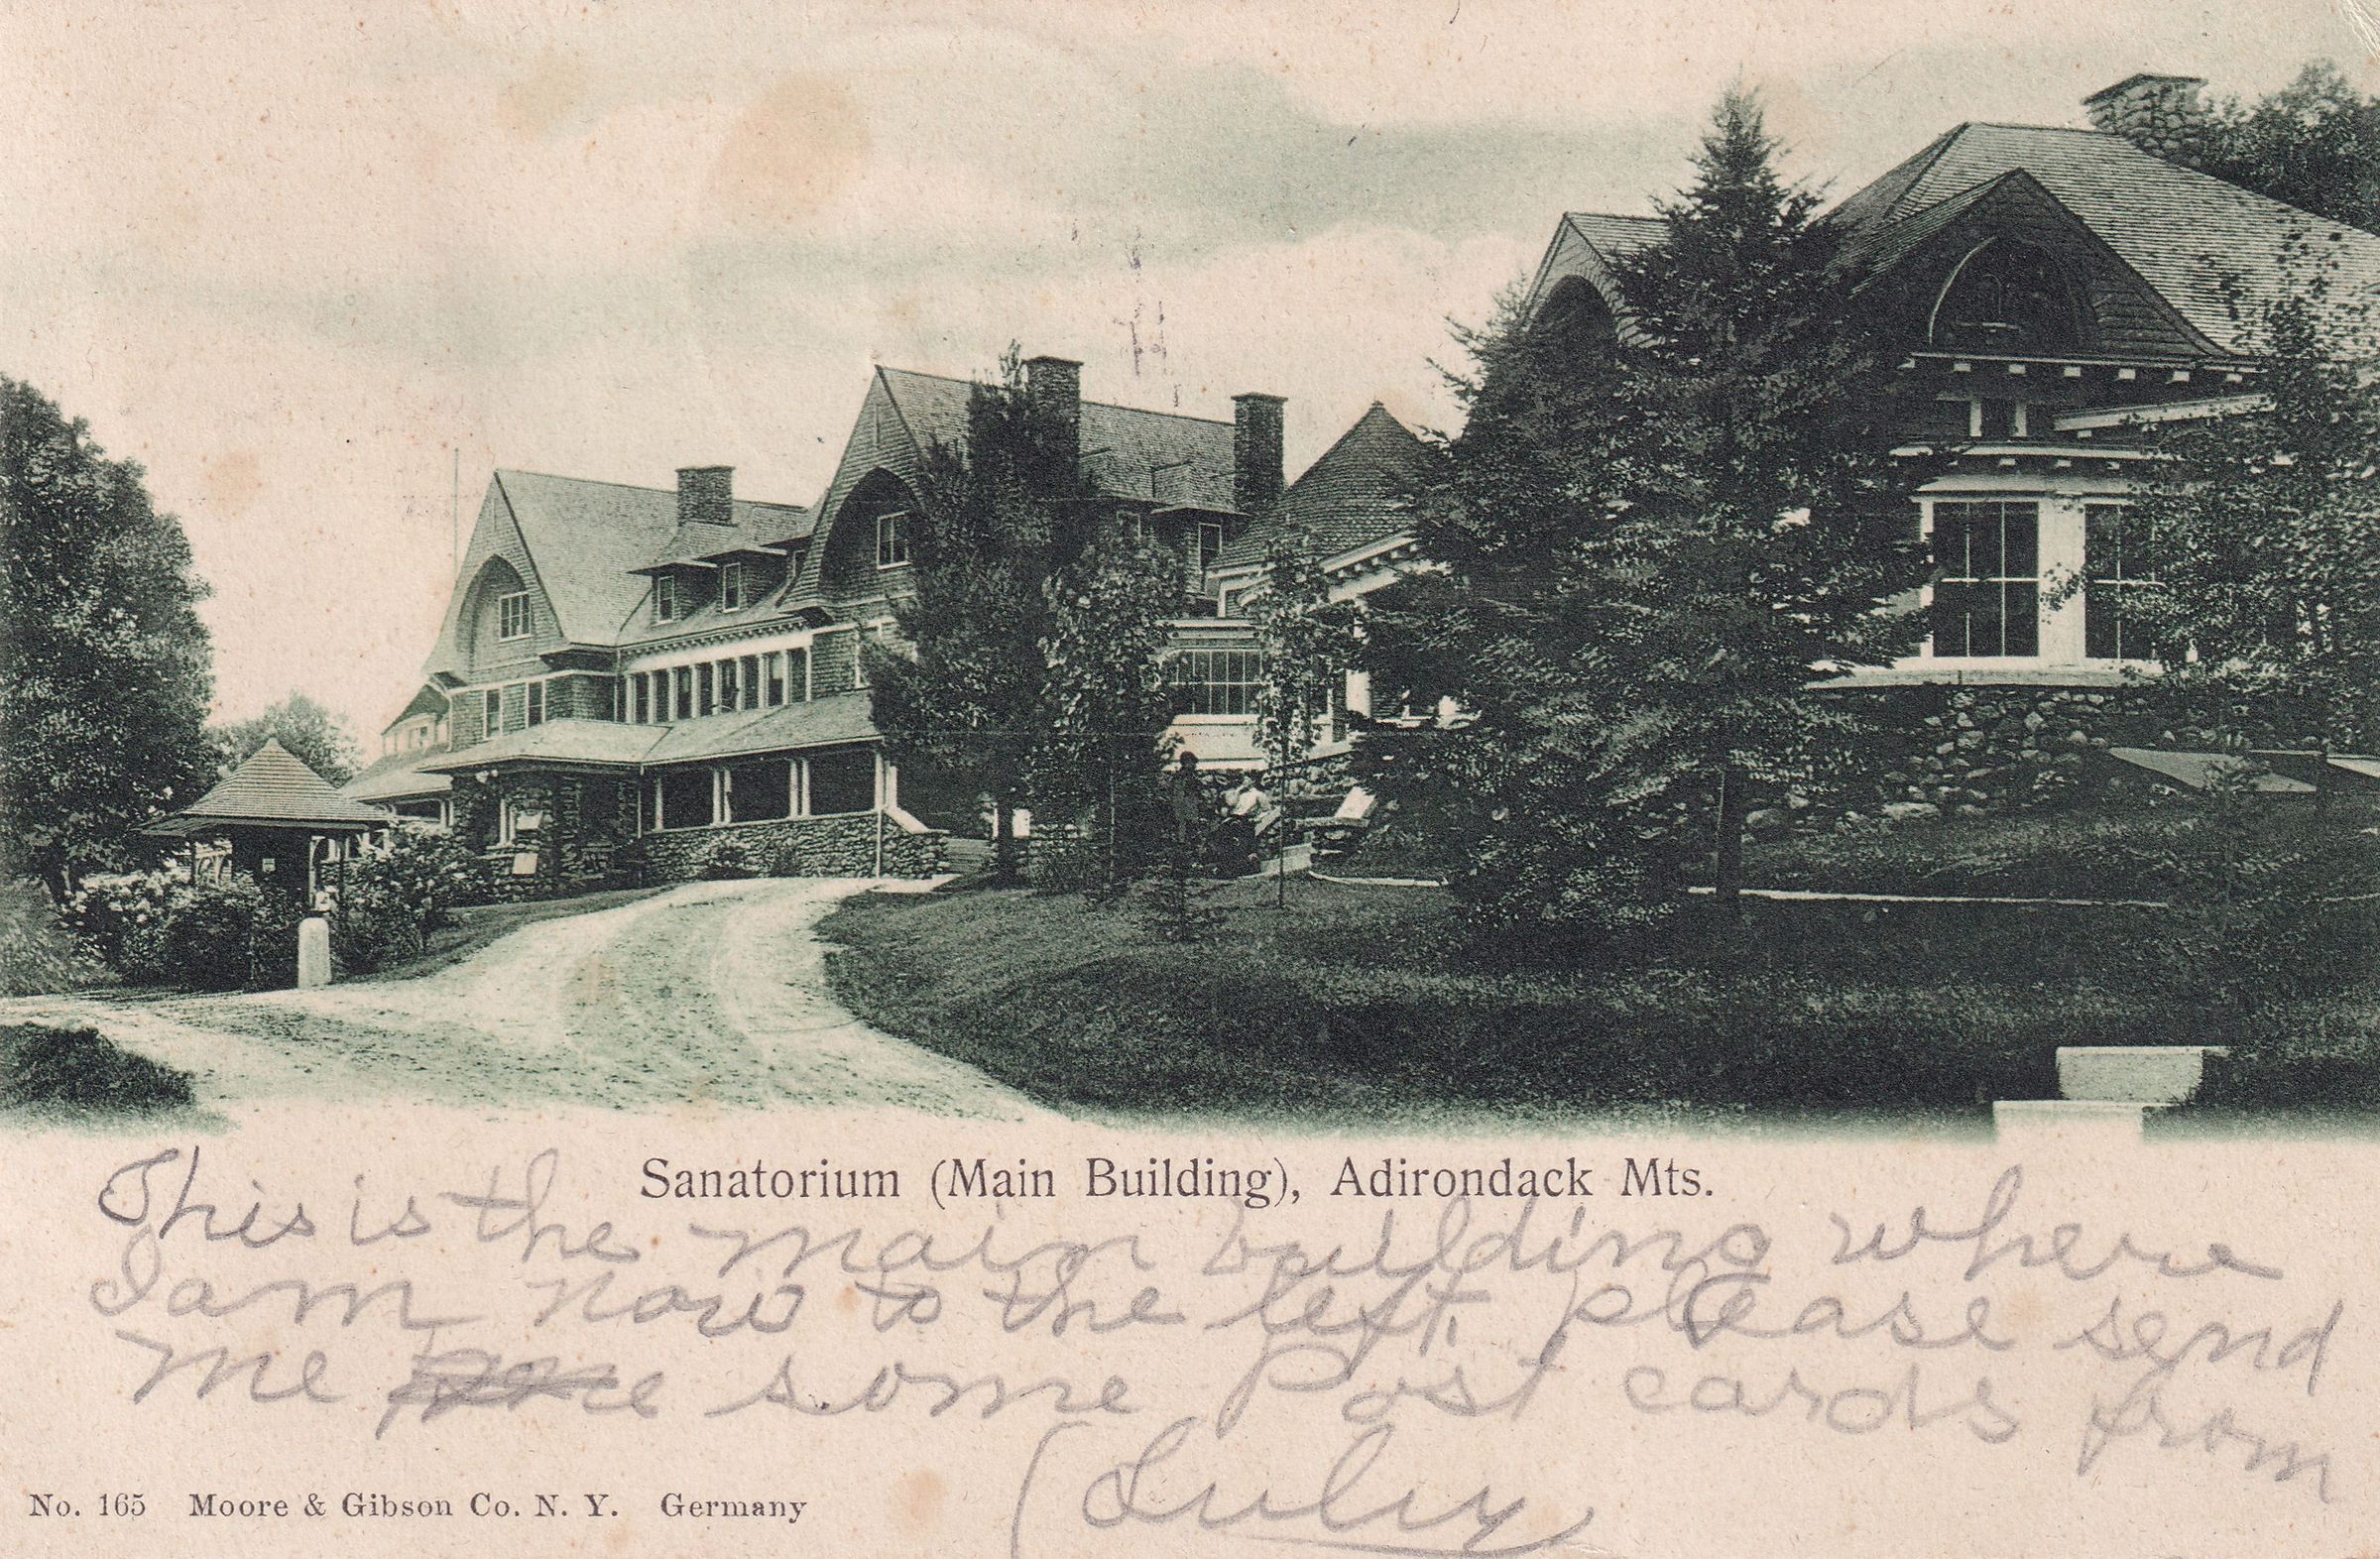 Sanatorium (Main Building), Adirondack Mts.
This is the main building where
I am now to the left. please send
me some Post cards from
No. 165 Moore & Gibson Co. N. Y. Germany